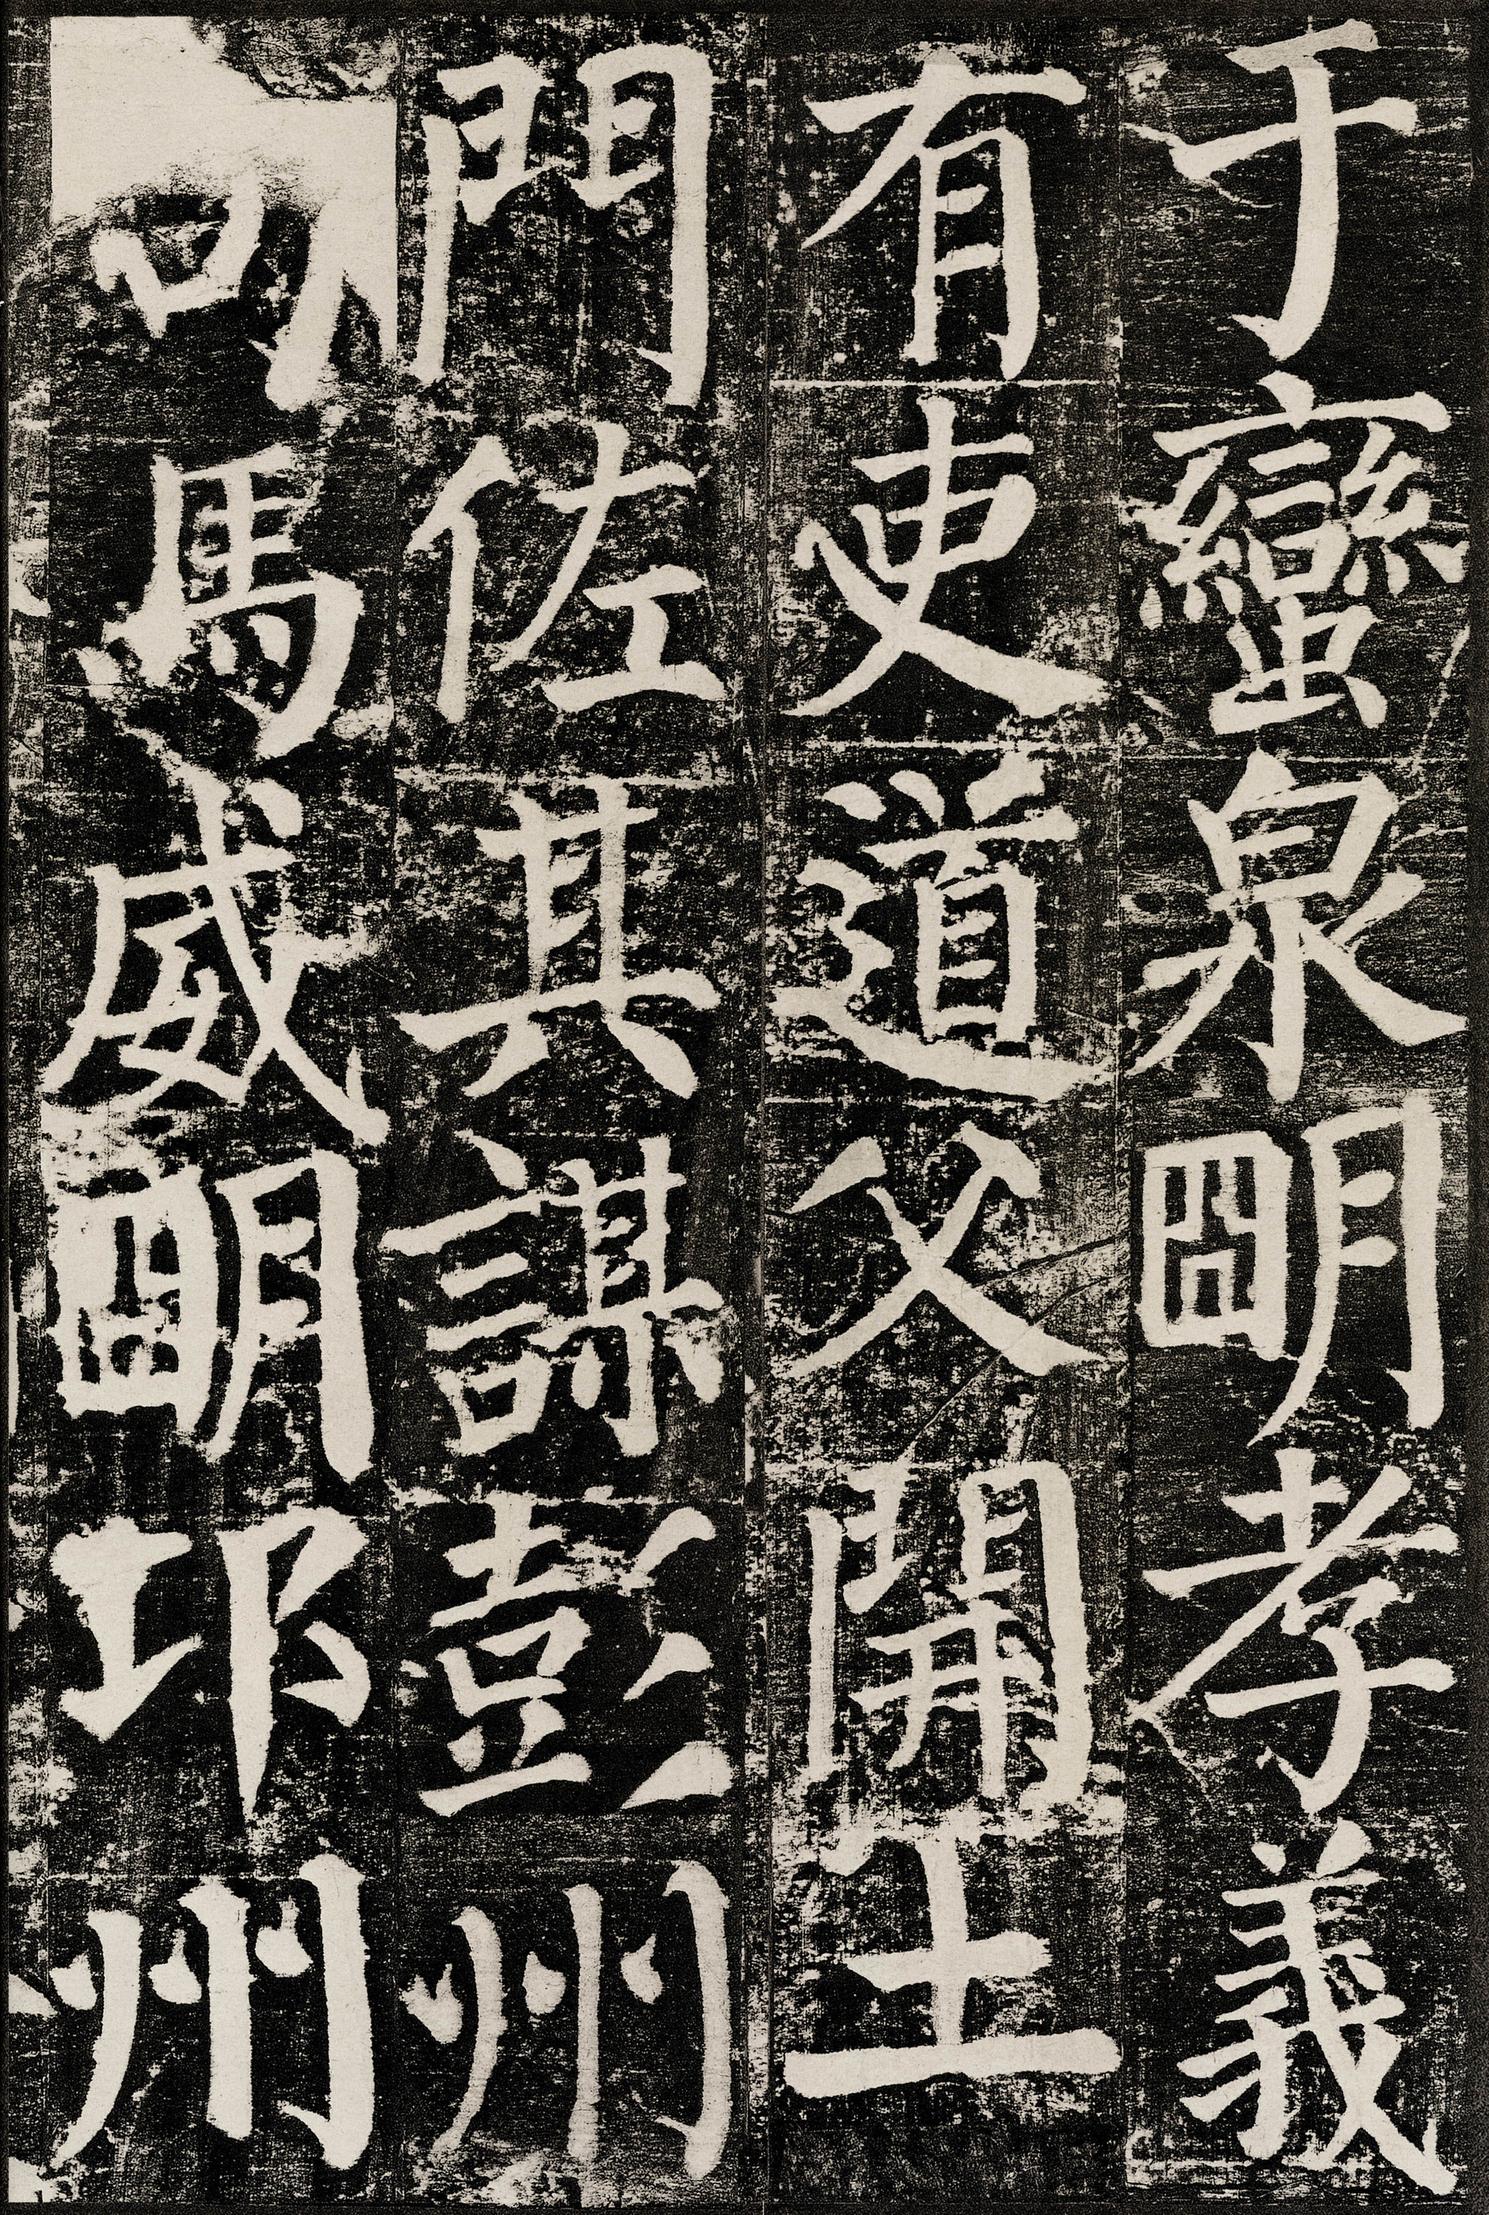 于蠻泉明孝義
有吏道父開土
門佐其謀彭州
司馬威明邛州